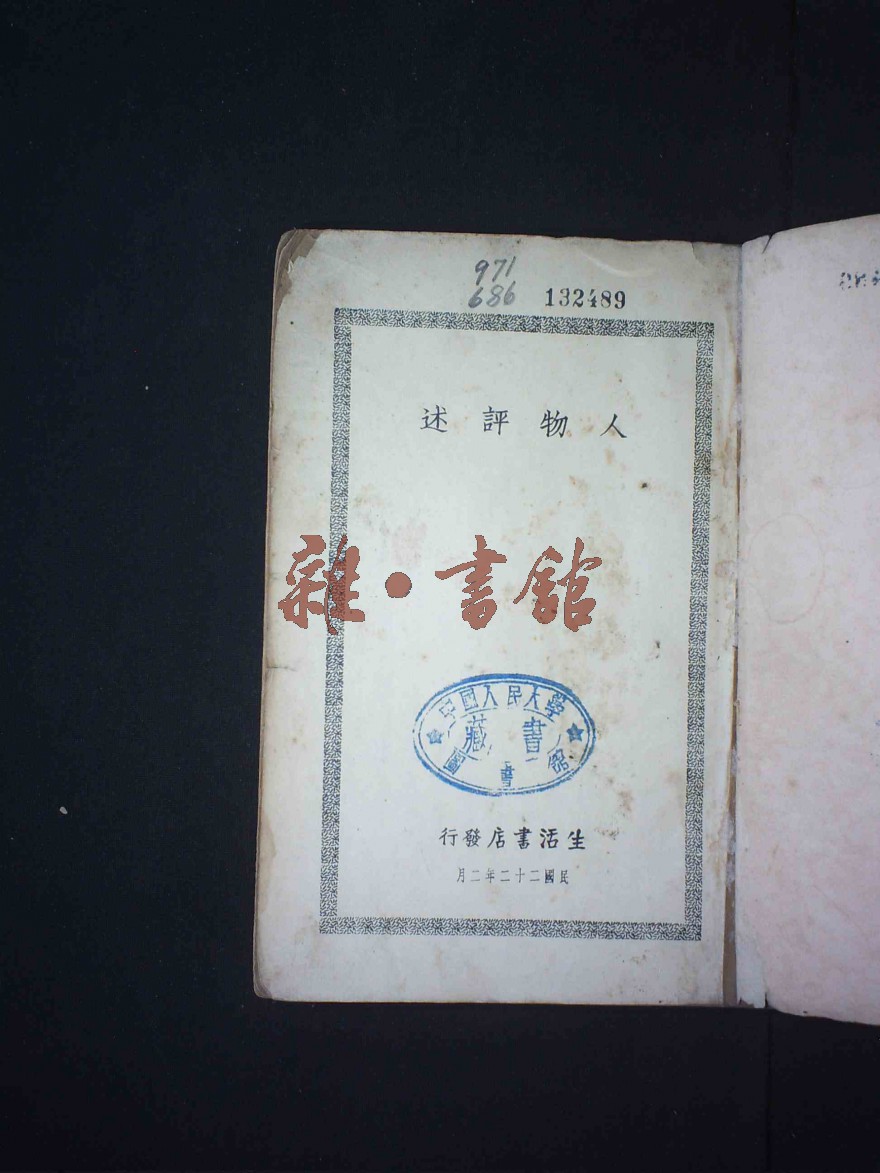 971
686 132489
人物評述
雜·書館
中國人民大學
藏書
圖書館
生活書店發行
民國二十二年二月